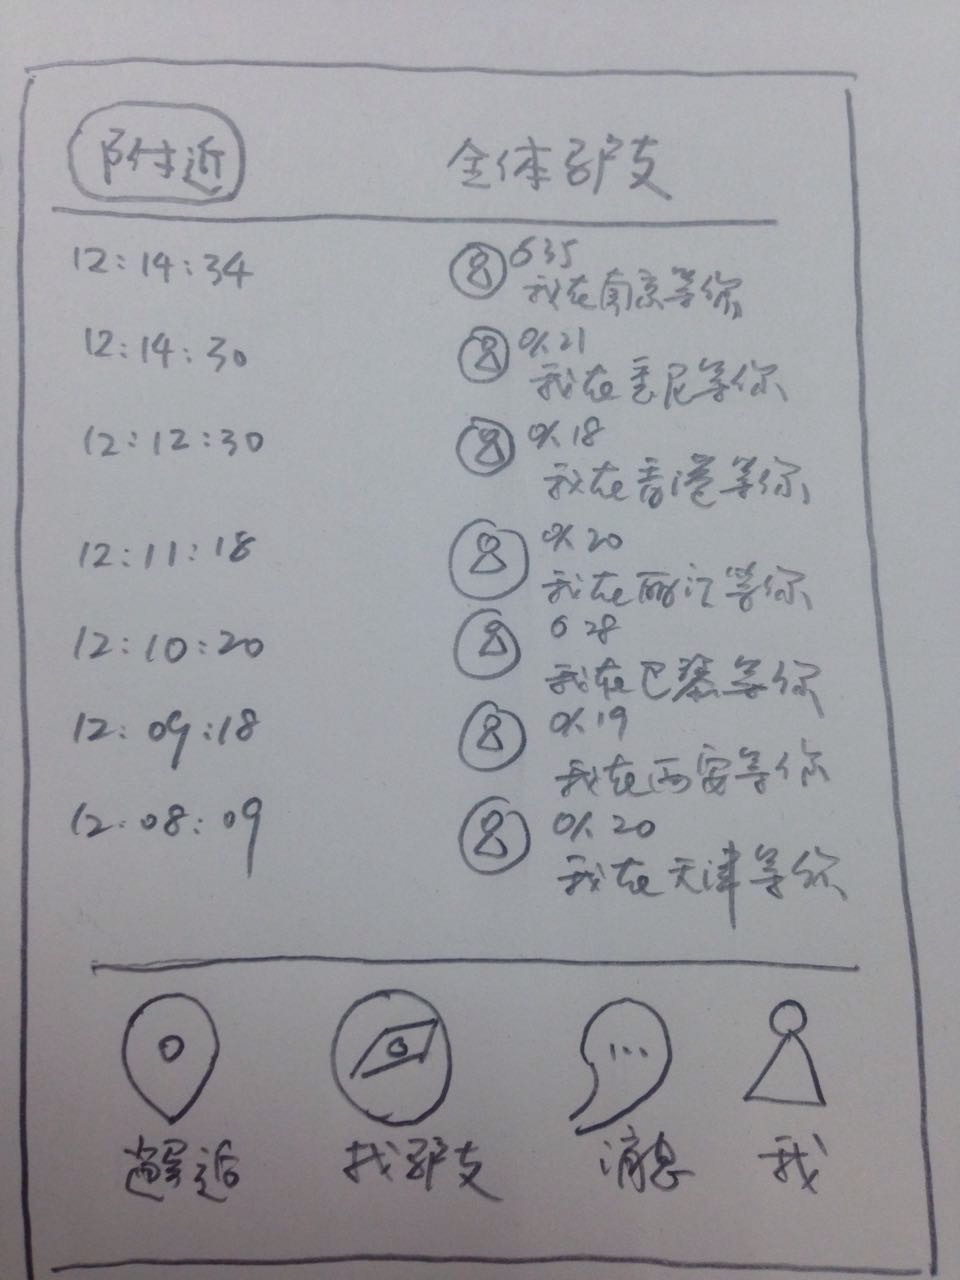 附近 全体驴友
12:14:34 635
我在南京等你
12:14:30 21
我在悉尼等你
12:12:30 18
我在香港等你
12:11:18 20
我在丽江等你
12:10:20 28
我在巴黎等你
12:09:18 19
我在西安等你
12:08:09 20
我在天津等你
邂逅 找驴友 消息 我